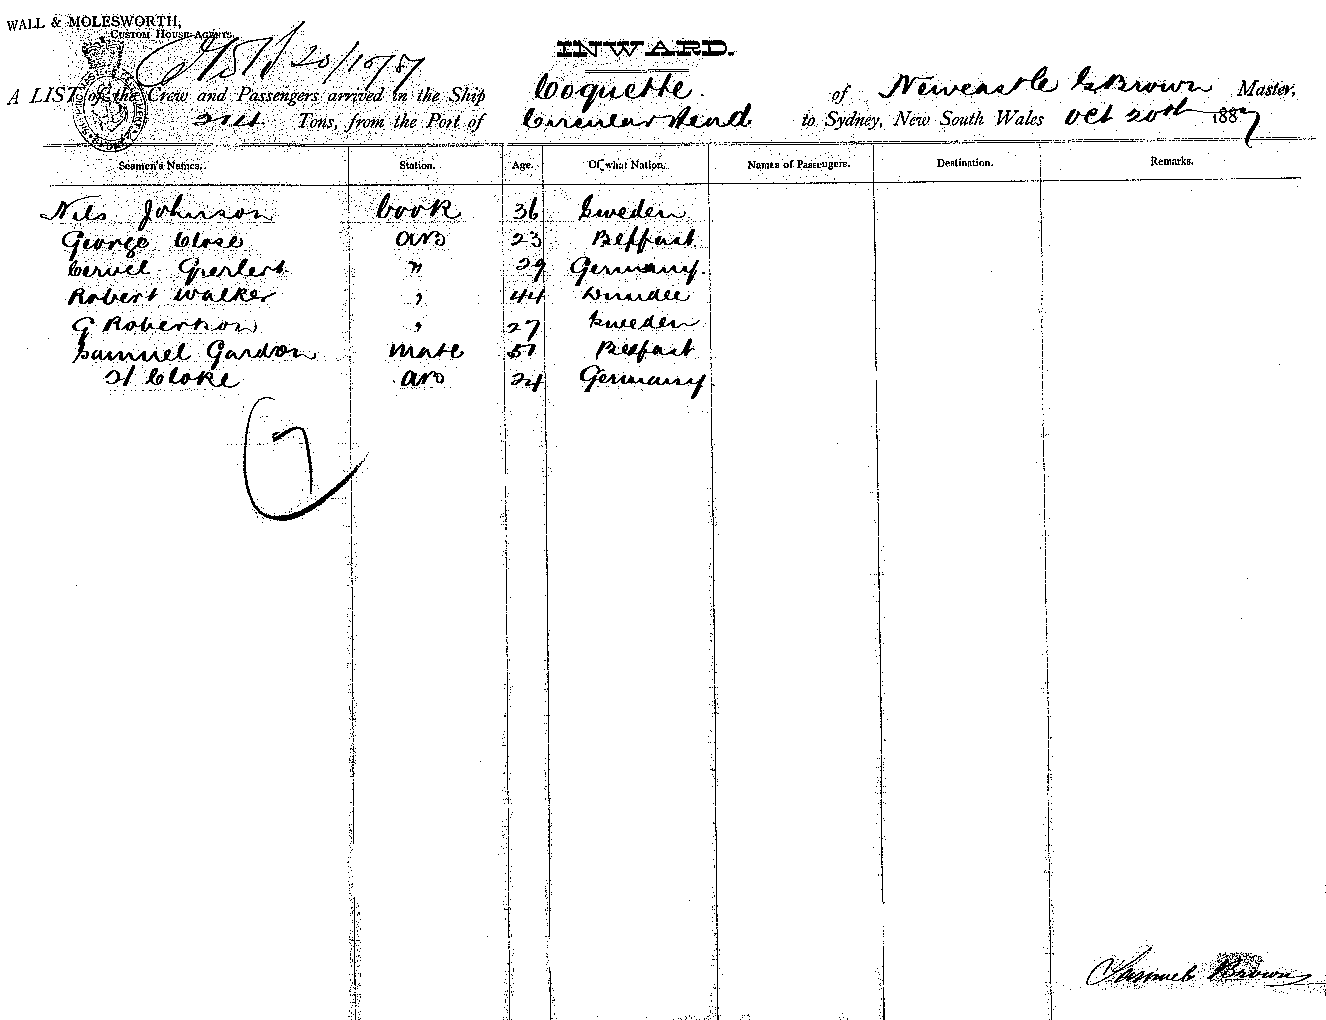 WALL & MOLESWORTH,
CUSTOM HOUSE AGENTS,
20/10/87
INWARD.
A LIST of the Crew and Passengers arrived in the Ship Coquette. of Newcastle S Brown Master,
Tons, from the Port of Circular Head to Sydney, New South Wales Oct 20th 1887
Seamen's Names. Station. Age. Of what Nation. Names of Passengers. Destination. Remarks.
Nils Johnson Cook 36 Sweden
George Close AB 23 Belffast
29 Germany
Robert Walker , 44 Dundee
G Robertson , 27 Sweden
Samuel Gardon mate 51 Belfast
AB 24 Germany
7
Samuel Brown